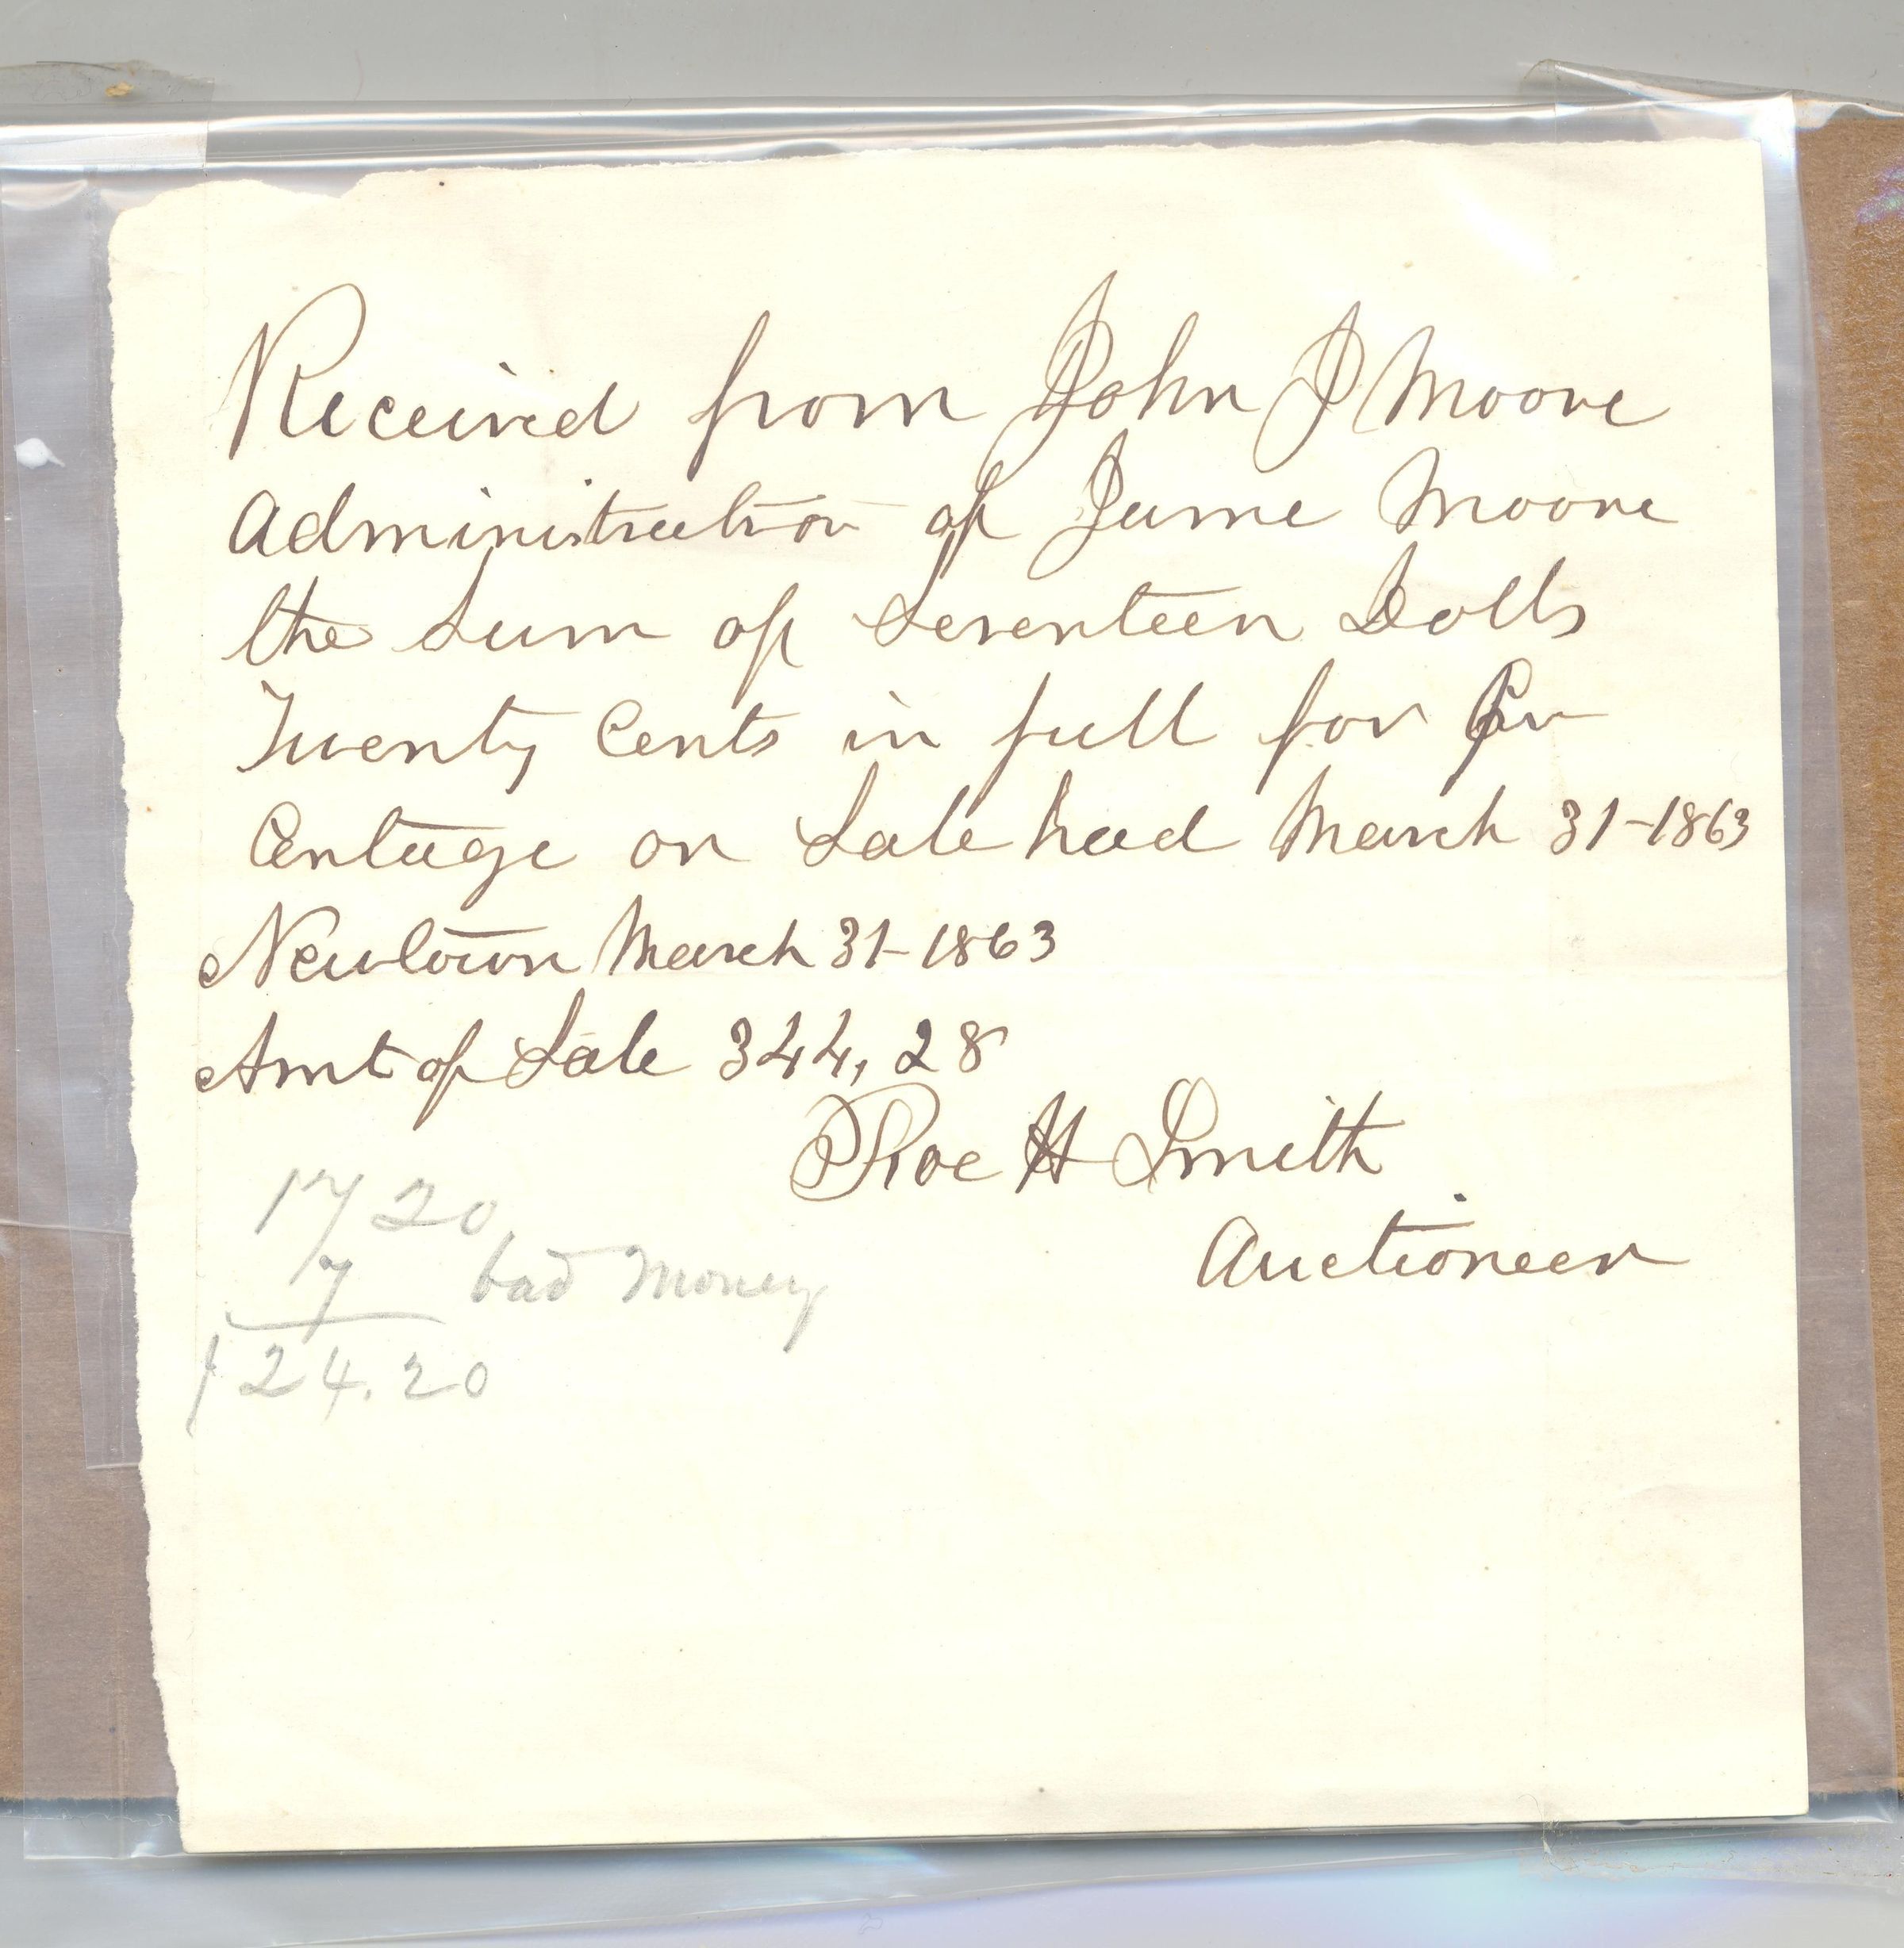 Received from John J Moore
Administration of Jame Moore
the Sum of Seventeen Dolls
Twenty Cents in full for Per
Centage on Sale had March 31-1863
Newtown March 31-1863
Amt of Sale 344,28
Roe H Smith
Auctioneer
17 20
7 bad Money
$24.20